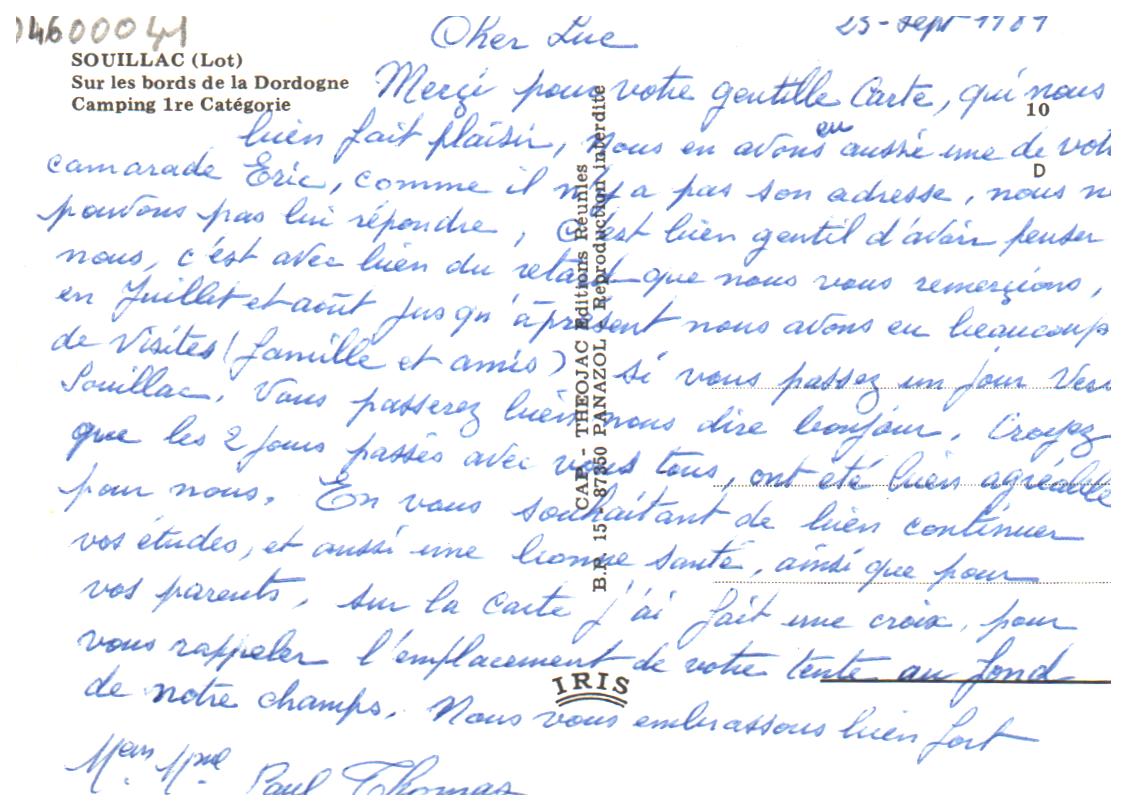 04600041
25 - Sept 1989
Cher Luc
SOUILLAC (Lot)
Sur les bords de la Dordogne
Camping 1re Catégorie
10
D
Merçi pour votre gentille Carte, qui nous
bien fait plaisir, Nous en avons eu aussi une de votr
camarade Eric, comme il n'y a pas son adresse, nous n
pouvons pas lui répondre, C'est bien gentil d'avoir penser
nous, c'est avec bien du retard que nous vous remerçions,
en Juillet et août jusqu'à présent nous avons eu beaucoup
de Visites (famille et amis) si vous passez un jour Vers
Souillac, Vous passerez bien nous dire bonjour. Croyez
que les 2 jours passés avec vous tous, ont été bien agréable
pour nous. En vous souhaitant de bien continuer
vos études, et aussi une bonne santé, ainsi que pour
vos parents, sur la carte j'ai fait une croix, pour
vous rappeler l'emplacement de votre tente au fond
de notre champs. Nous vous embrassons bien fort
Mr. Mme Paul Thomas
CAP - THEOJAC Editions Réunies
B.P. 15 - 87350 PANAZOL - Reproduction interdite
IRIS